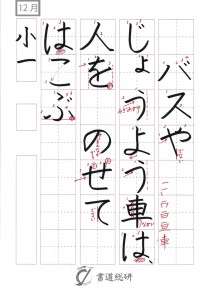 12月
バスや
じょうよう車は、
人を のせて
はこぶ
小一
書道総研